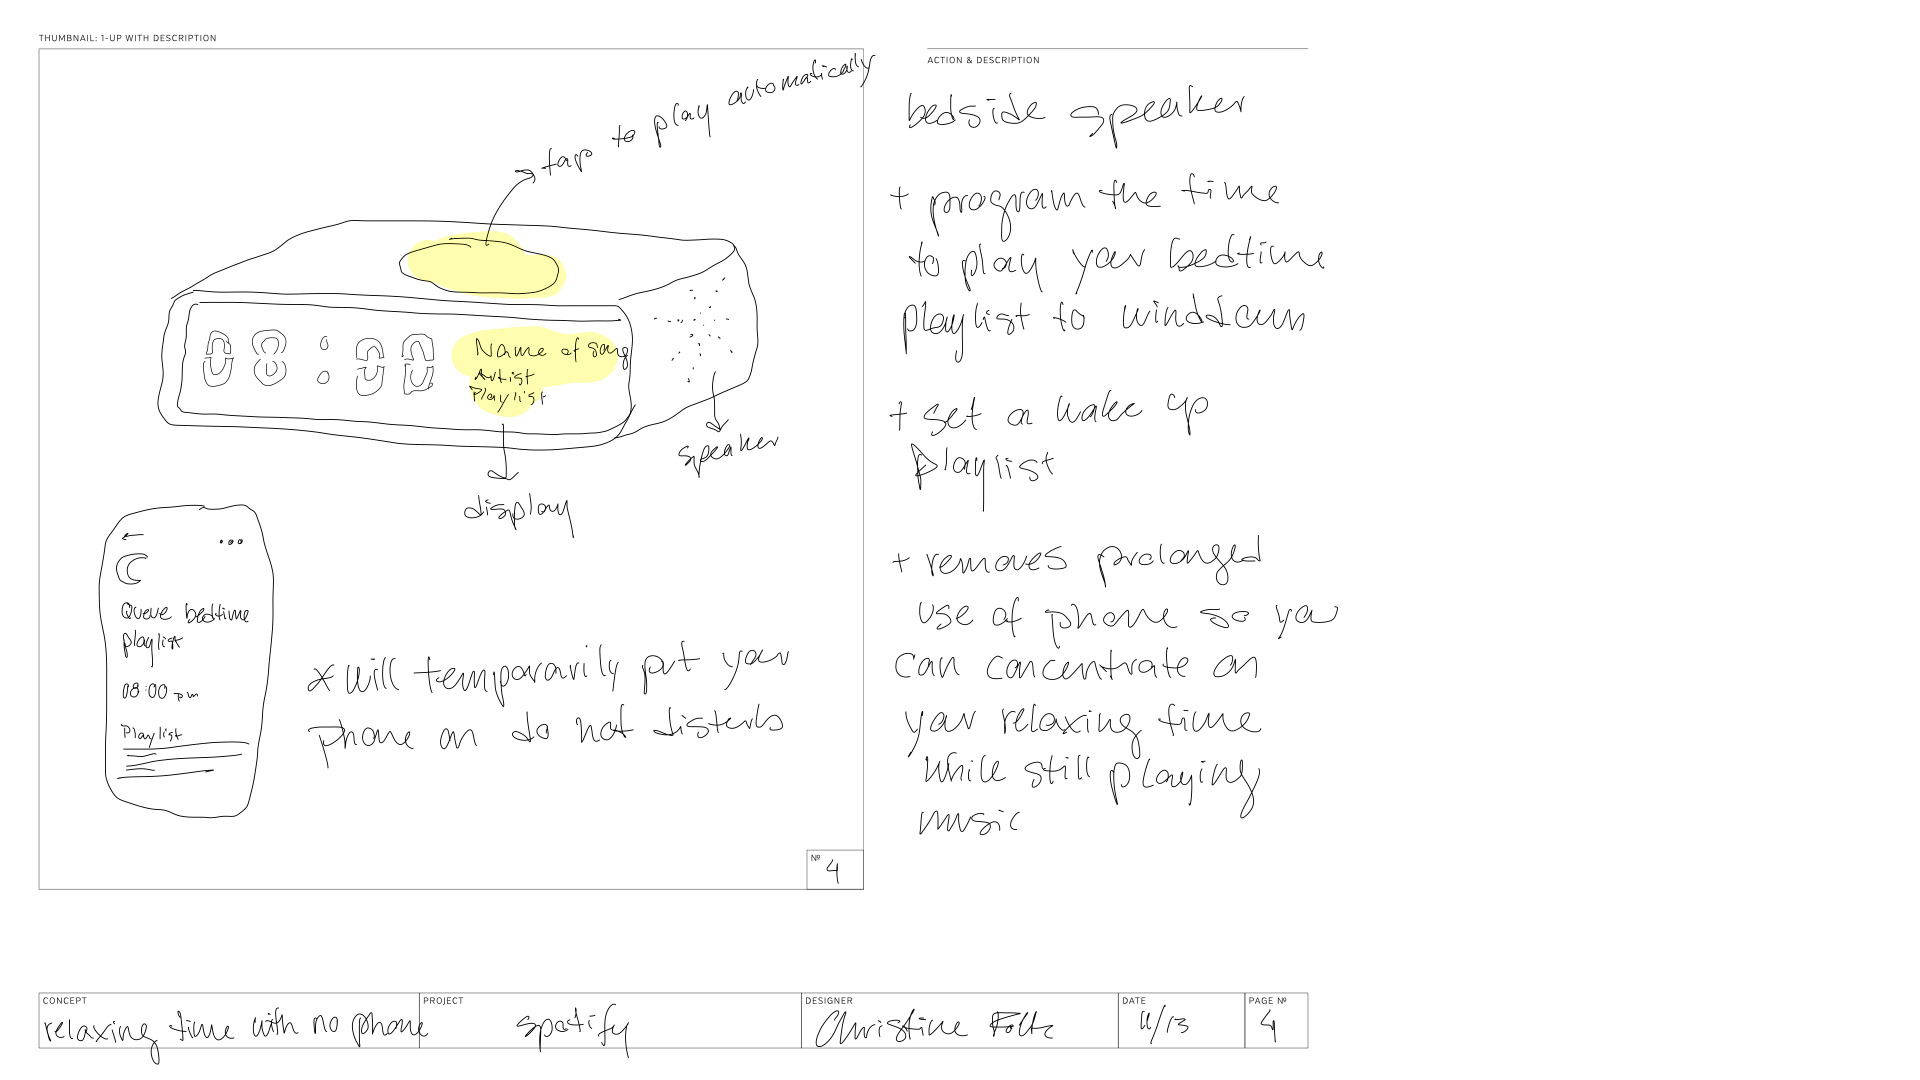 THUMBNAIL: 1-UP WITH DESCRIPTION
tap to play automatically
08:00
Name of song
Artist
Playlist
speaker
display
←
...
Queue bedtime
playlist
08:00 pm
Playlist
* Will temporarily put your
phone on do not disterbs
Nº
4
ACTION & DESCRIPTION
bedside speaker
+ program the time
to play your bedtime
playlist to winddown
+ set a wake up
Playlist
+ removes prolonged
use of phone so you
can concentrate on
your relaxing time
while still playing
music
CONCEPT
relaxing time with no phone
PROJECT
spotify
DESIGNER
Christine
DATE
11/13
PAGE Nº
4